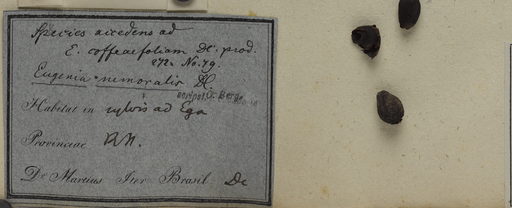 Species accedens ad
E. coffeaefoliam DC. prod.
272. No. 79.
Eugenia nemoralis DC.
script. O. Berg
Habitat in sylvis ad Ega
Provinciae R.N.
Dr Martius Iter Brasil. Dc